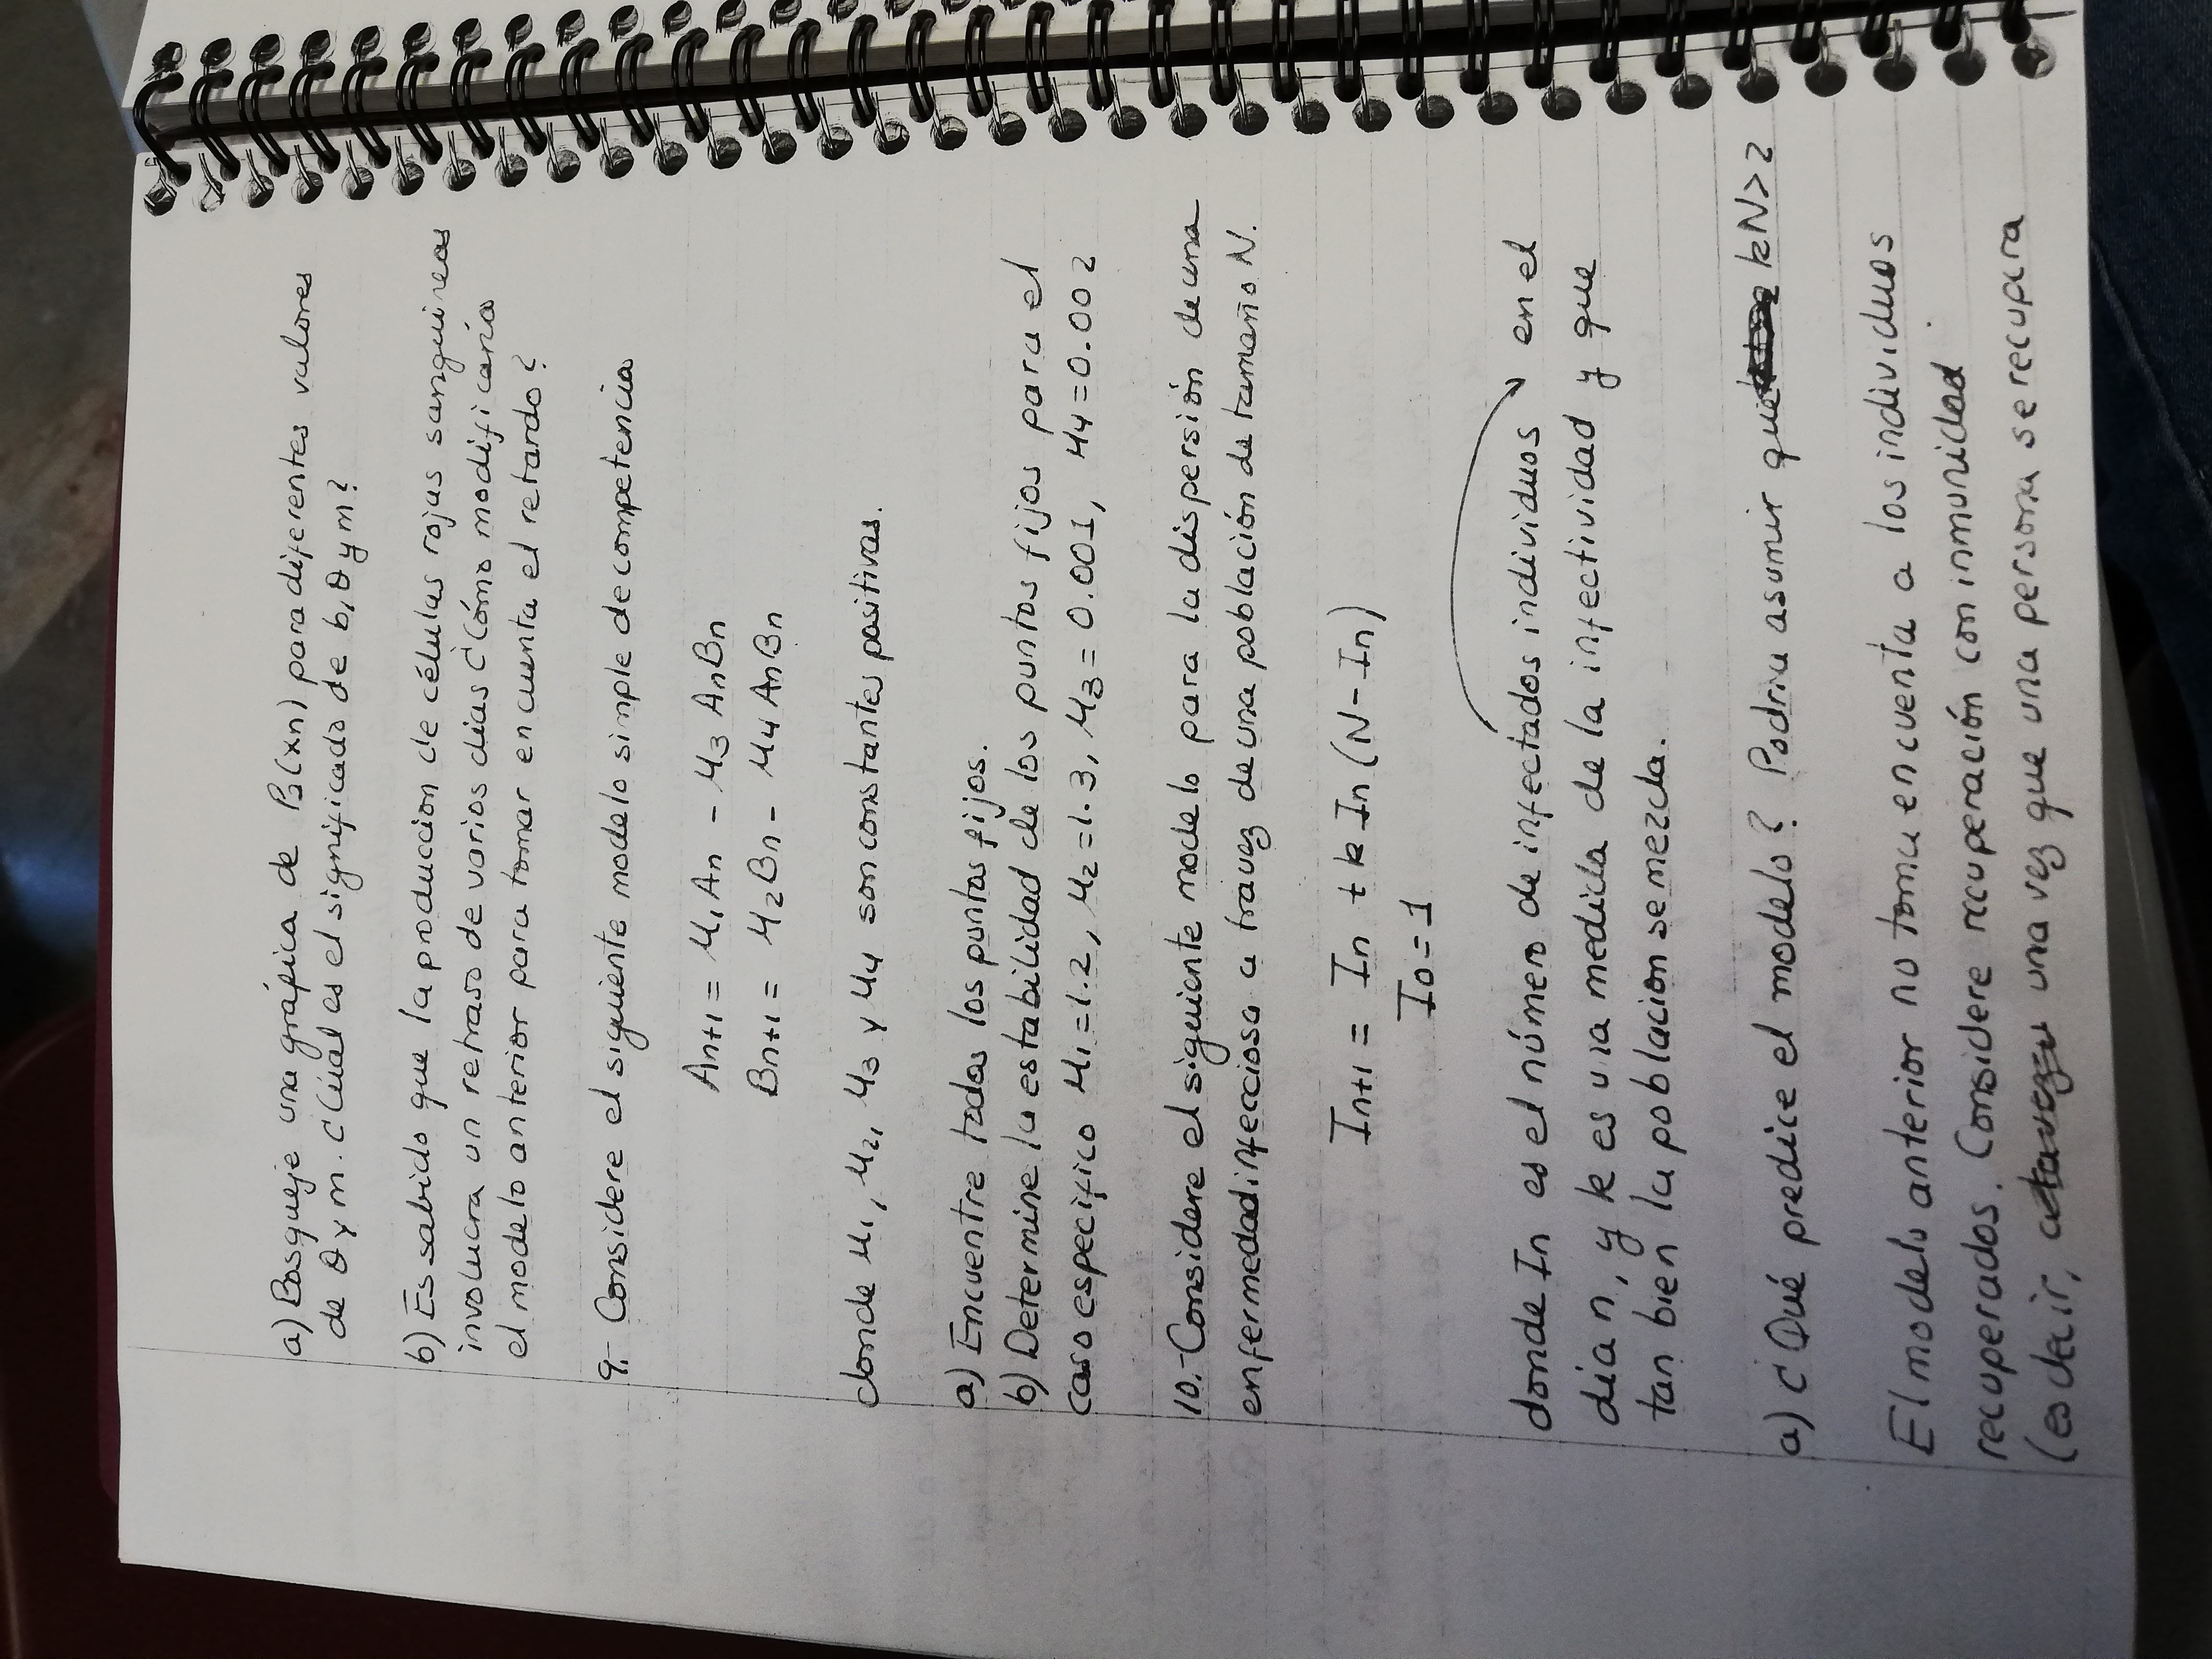 a) Bosqueje una gráfica de P3(xn) para diferentes valores
de θ y m. ¿Cúal es el significado de b, θ y m?
b) Es sabido que la produccion de células rojas sanguineas
involucra un retraso de varios dias ¿Cómo modificaría
el modelo anterior para tomar en cuenta el retardo?
9.- Considere el siguiente modelo simple de competencia
An+1 = μ1An - μ3 AnBn
Bn+1 = μ2Bn - μ4 AnBn
donde μ1, μ2, μ3 y μ4 son constantes positivas.
a) Encuentre todos los puntos fijos.
b) Determine la estabilidad de los puntos fijos para el
caso especifico μ1=1.2, μ2=1.3, μ3=0.001, μ4=0.002
10.- Considere el siguiente modelo para la dispersión de una
enfermedad infecciosa a travez de una población de tamaño N.
In+1 = In + k In (N-In)
I0=1
donde In es el número de infectados individuos en el
dia n, y k es una medida de la infectividad y que
tan bien la poblacion se mezcla.
a) ¿Qué predice el modelo? Podria asumir que kN>2
El modelo anterior no toma en cuenta a los individuos
recuperados. Considere recuperación con inmunidad
(es decir, una vez que una persona se recupara